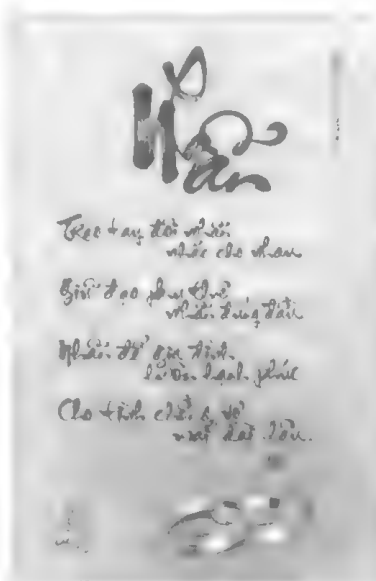 Nhẫn
Trao tay đôi nhẫn
nhắc cho nhau
Giữ đạo phu thê
nhẫn đứng đầu
Nhẫn để gia đình
luôn hạnh phúc
Cho tình chồng vợ
lâu.